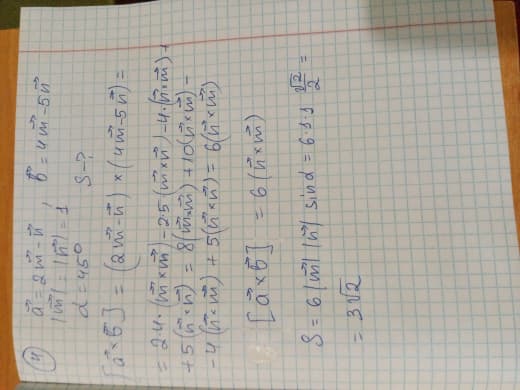 4 a⃗ = 2m⃗ - n⃗ , b⃗ = 4m⃗ - 5n⃗
|m⃗| = |n⃗| = 1
α = 45° S - ?
[a⃗ × b⃗] = (2m⃗ - n⃗) × (4m⃗ - 5n⃗) =
= 2·4·(m⃗ × m⃗) - 2·5(m⃗ × n⃗) - 4·(n⃗ × m⃗) +
+ 5(n⃗ × n⃗) = 8(m⃗ × m⃗) + 10(n⃗ × m⃗) -
- 4(n⃗ × m⃗) + 5(n⃗ × n⃗) = 6(n⃗ × m⃗)
[a⃗ × b⃗] = 6(n⃗ × m⃗)
S = 6|m⃗| |n⃗| sinα = 6·1·1 √2/2 =
= 3√2